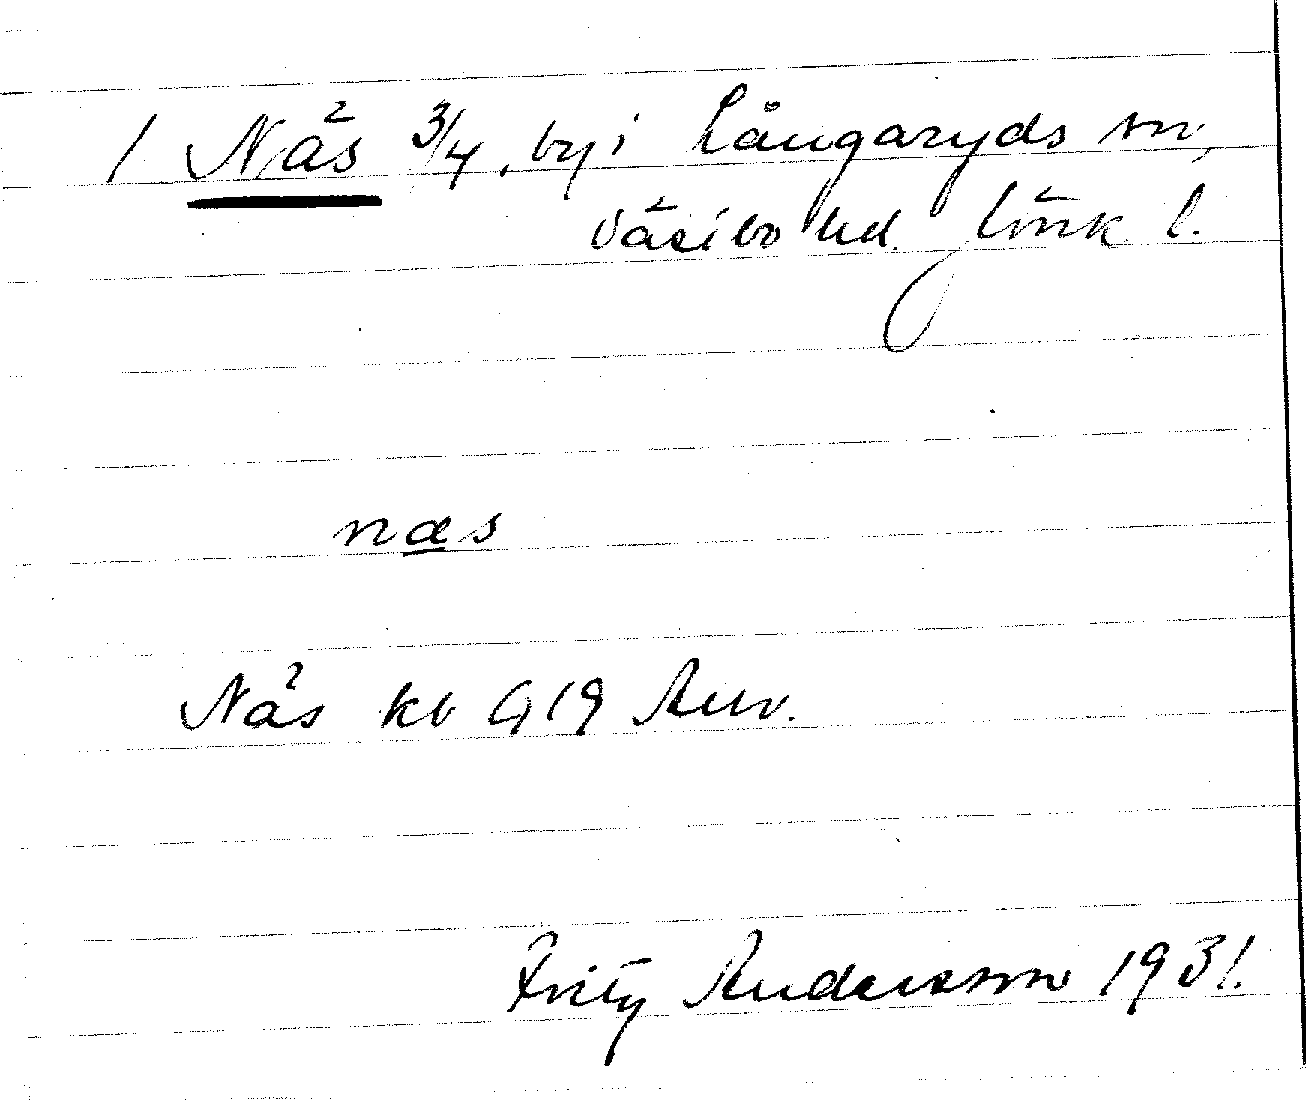 1 Näs 3/4, by i Långaryds sn,
Västbo hd. Jönk l.
næs
Näs kb G 19 Anv.
Fritz Andersson 1931.